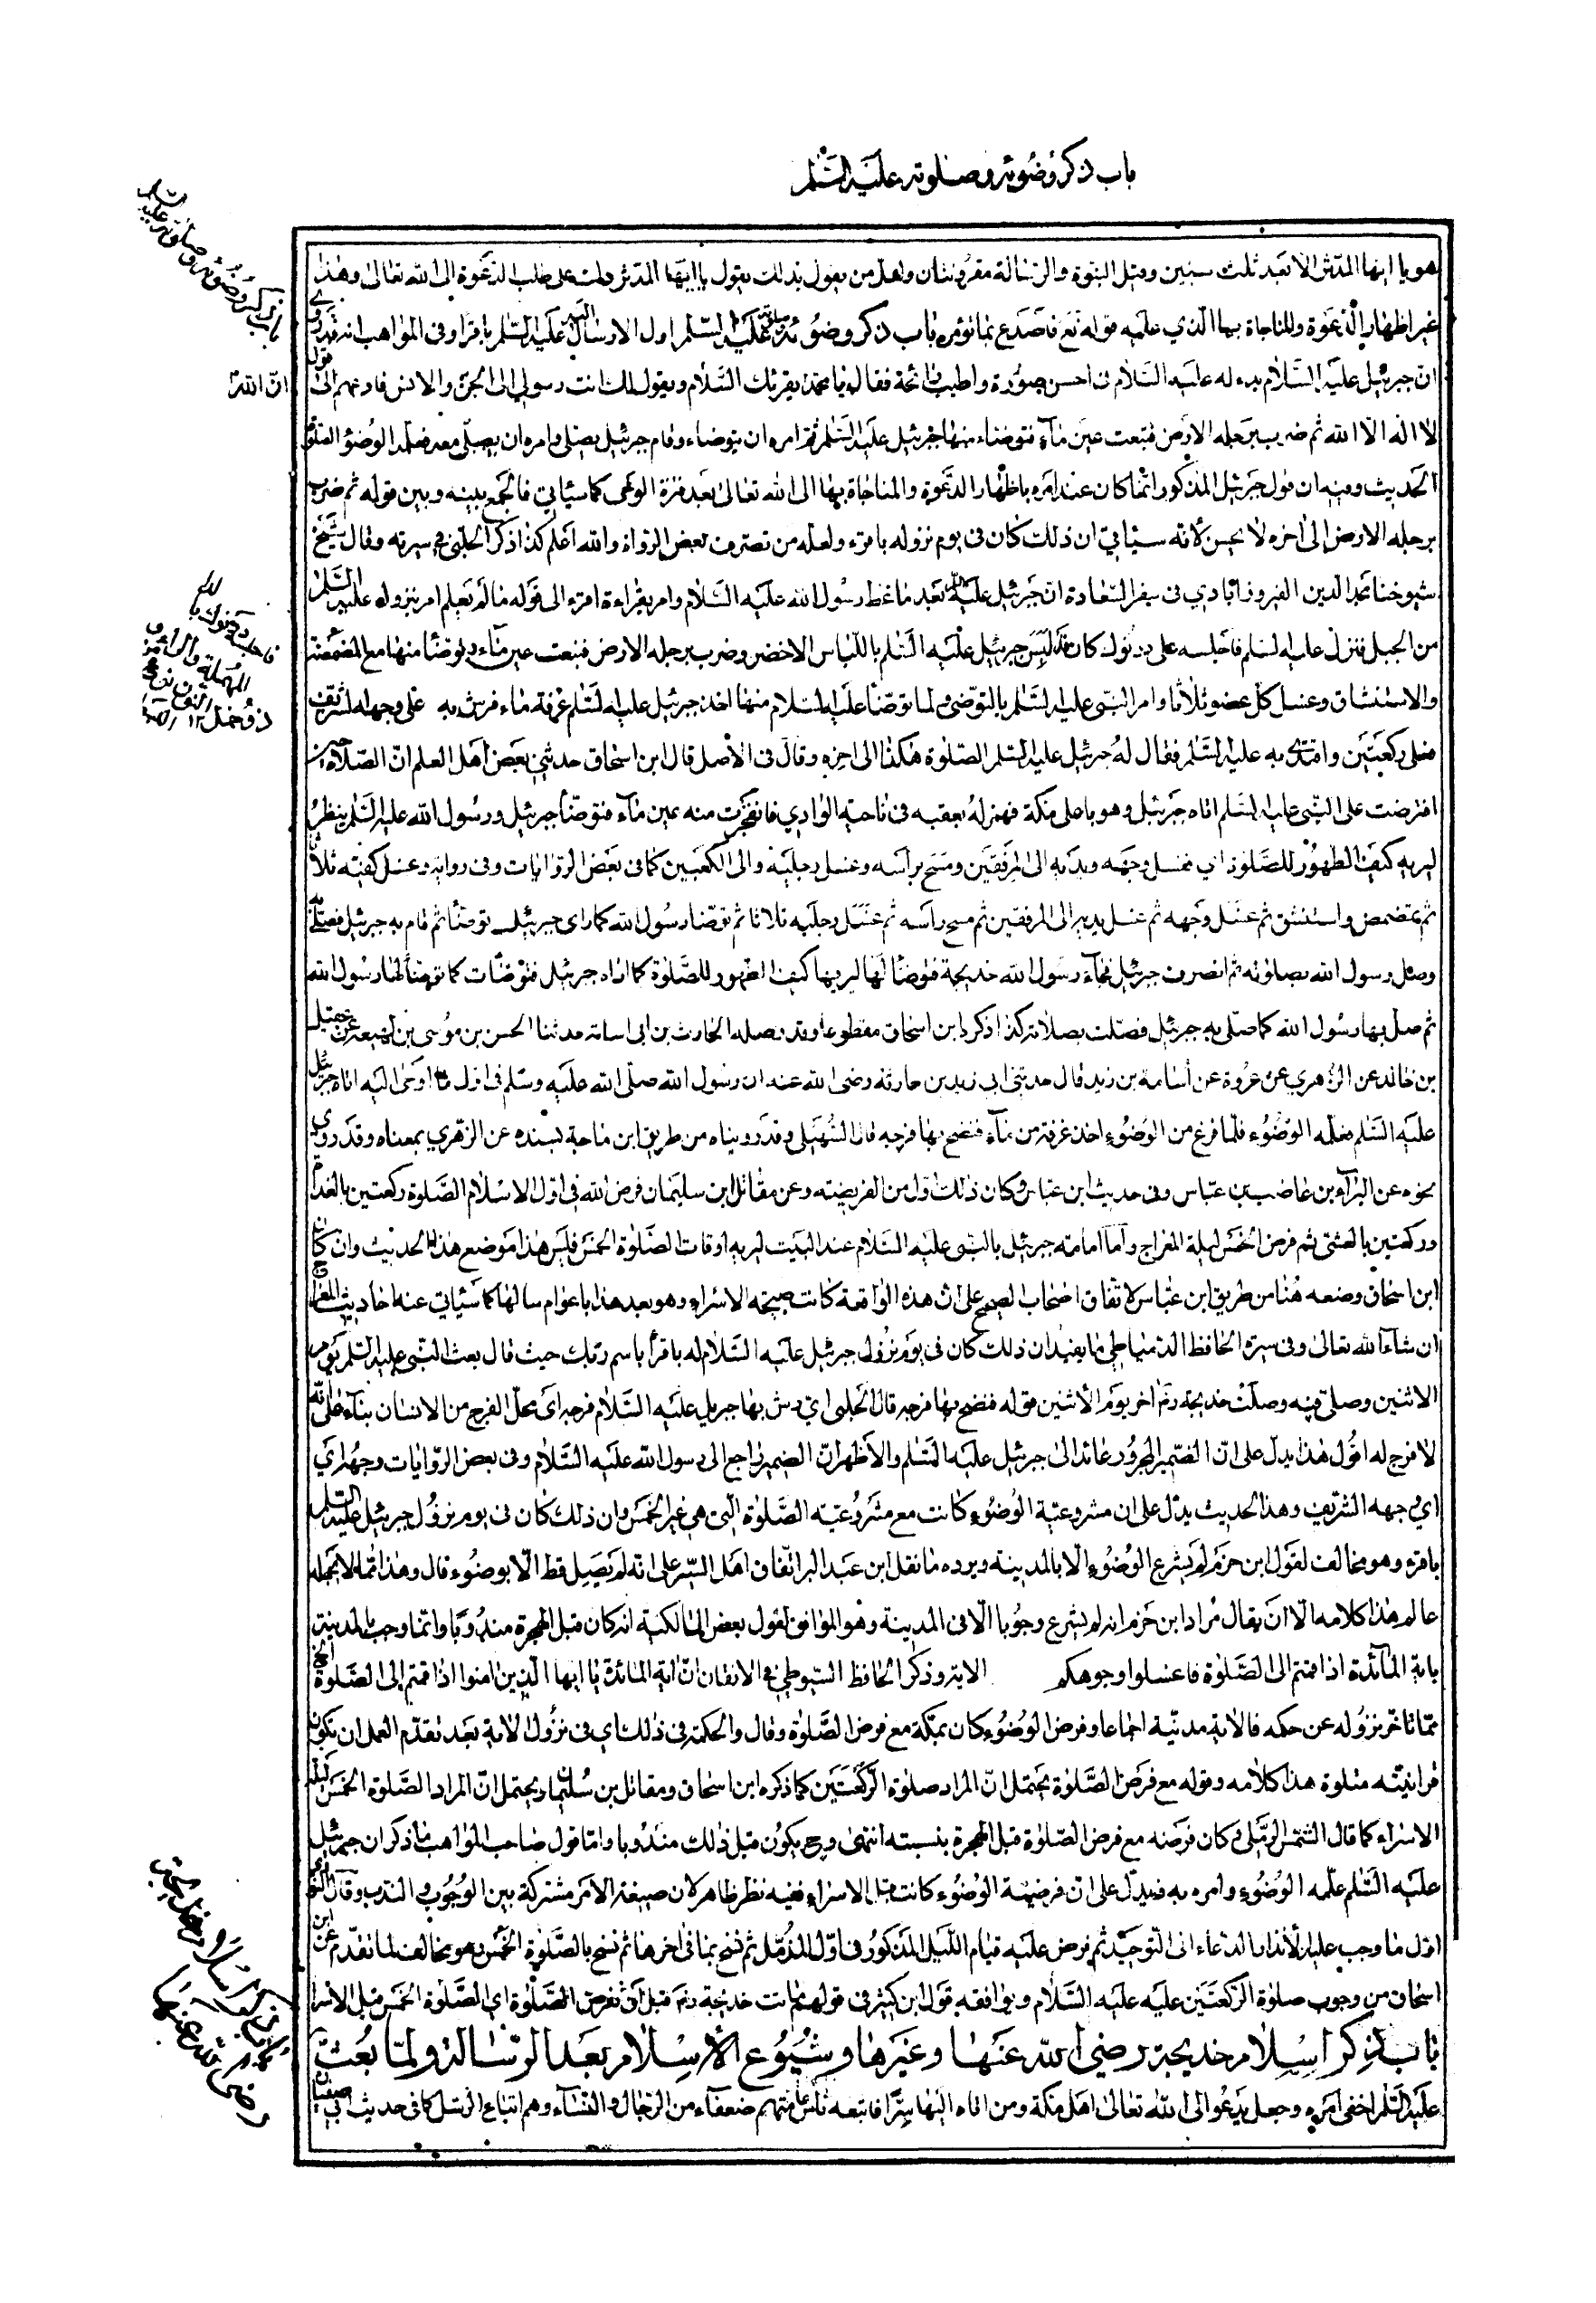 باب ذكر وضوئه وصلوته عليه السلم
هو يا ايها المدثر الا بعد ثلث سنين وقيل النبوة والرسالة مقرونتان ولعل من يقول بذلك يقول يا ايها المدثر دلت على طلب الدعوة الى الله تعالى وهذا
غير اظهار الدعوة والمناجاة بها الذي عليه قوله تع فاصدع بما تؤمر باب ذكر وضوئه وصلوته عليه السلم اول الارسال اليه عليه السلم باقرا وفي المواهب انه قد روي
ان جبرئيل عليه السلام بدء له عليه السلام في احسن صورة واطيب رائحة فقال يا محمد يقرئك السلام ويقول لك انت رسولي الى الجن والانس فادعهم الى قول
ان الله
لا اله الا الله ثم ضرب برجله الارض فنبعت عين ماء فتوضاء منها جبرئيل عليه السلم ثم امره ان يتوضاء وقام جبرئيل يصلي وامره ان يصلي معه فعلمه الوضوء والصلوة
الحديث وفيه ان قول جبرئيل المذكور انما كان عند امره باظهار الدعوة والمناجاة بها الى الله تعالى بعد فترة الوحي كما سياتي فالجمع بينه وبين قوله ثم ضرب
برجله الارض الى اخره لا يحسن لانه سياتي ان ذلك كان في يوم نزوله باقرء ولعله من تصرف بعض الرواة والله اعلم كذا ذكر الحلبي في سيرته وقال شيخ
شيوخنا مجد الدين الفيروزابادي في سفر السعادة ان جبرئيل عليه السلم بعد ما غط رسول الله عليه السلام وامر بقراءة اقرء الى قوله ما لم يعلم امر بنزوله عليه السلم
من الجبل فنزل عليه السلم فاجلسه على درنوك كان قد لبس جبرئيل عليه السلم باللباس الاخضر وضرب برجله الارض فنبعت عين ماء وتوضأ منها مع المضمضة
والاستنشاق وغسل كل عضو ثلاثا وامر النبي عليه السلم بالتوضي ولما توضأ عليه السلام منها اخذ جبرئيل عليه السلم غرفة ماء فرش به على وجهه الشريف
فصلى ركعتين واقتدى به عليه السلم فقال له جبرئيل عليه السلم الصلوة هكذا الى اخره وقال في الاصل قال ابن اسحاق حدثني بعض اهل العلم ان الصلاة حين
افترضت على النبي عليه السلم اتاه جبرئيل وهو باعلى مكة فهمز له بعقبه في ناحية الوادي فانفجرت منه عين ماء فتوضأ جبرئيل ورسول الله عليه السلم ينظر
ليريه كيف الطهور للصلوة اي فغسل وجهه ويديه الى المرفقين ومسح براسه وغسل رجليه والى الكعبين كما في بعض الروايات وفي رواية وغسل كفيه ثلاثا
ثم تمضمض واستنشق ثم غسل وجهه ثم غسل يديه الى المرفقين ثم مسح راسه ثم غسل رجليه ثلاثا ثم توضا رسول الله كما راى جبرئيل توضأ ثم قام به جبرئيل فصلى به
وصلى رسول الله بصلوته ثم انصرف جبرئيل فجاء رسول الله خديجة فتوضأ لها ليريها كيف الطهور للصلوة كما اراه جبرئيل فتوضأت كما توضأ لها رسول الله
ثم صلى بها رسول الله كما صلى به جبرئيل فصلت بصلاته كذا ذكره ابن اسحاق مقطوعا وقد وصله الحارث بن ابي اسامة حدثنا الحسن بن موسى بن لهيعة عن عقيل
بن خالد عن الزهري عن عروة عن اسامة بن زيد قال حدثني ابي زيد بن حارثة رضى الله عنه ان رسول الله صلى الله عليه وسلم في اول ما اوحي اليه اتاه جبرئيل
عليه السلم فعلمه الوضوء فلما فرغ من الوضوء اخذ غرفة من ماء فنضح بها فرجه قال السهيلي وقد رويناه من طريق ابن ماجة بسنده عن الزهري بمعناه وقد روي
نحوه عن البراء بن عازب بن عباس وفي حديث ابن عباس وكان ذلك اول من الفريضة وعن مقاتل ابن سليمان فرض الله في اول الاسلام الصلوة ركعتين بالغداة
وركعتين بالعشي ثم فرض الخمس ليلة المعراج واما امامته جبرئيل بالنبي عليه السلام عند البيت ليريه اوقات الصلوة الخمس فليس هذا موضع هذا الحديث وان كان
ابن اسحاق وضعه هنا من طريق ابن عباس لاتفاق اصحاب الصحيح على ان هذه الواقعة كانت صبيحة الاسراء وهو بعد هذا باعوام سالها كما سياتي عنه احاديث المعراج
ان شاء الله تعالى وفي سيرة الحافظ الدمياطي ما يفيد ان ذلك كان في يوم نزول جبرئيل عليه السلام له باقرأ باسم ربك حيث قال بعث النبي عليه السلم يوم
الاثنين وصلى فيه وصلت خديجة رضم اخر يوم الاثنين قوله فنضح بها فرجه قال الحلبي اي رش بها جبريل عليه السلام فرجه اي محل الفرج من الانسان بناء على انه
لا فرج له اقول هذا يدل على ان الضمير المجرور عائد الى جبرئيل عليه السلم والاظهر ان الضمير راجع الى رسول الله عليه السلام وفي بعض الروايات وجهه اي
اي وجهه الشريف وهذا الحديث يدل على ان مشروعية الوضوء كانت مع مشروعية الصلوة التي هي غير الخمس وان ذلك كان في يوم نزول جبرئيل عليه السلم
باقرء وهو مخالف لقول ابن حزم لم يشرع الوضوء الا بالمدينة ويرده ما نقل ابن عبد البر اتفاق اهل السير على انه لم يصل قط الا بوضوء قال وهذا مما لا يجهله
عالم هذا كلامه الا ان يقال مراد ابن حزم انه لم يشرع وجوبا الا في المدينة وهو الموافق لقول بعض المالكية انه كان قبل الهجرة مندوبا وانما وجب بالمدينة
باية المائدة اذا قمتم الى الصلوة فاغسلوا وجوهكم الاية وذكر الحافظ السيوطي في الاتقان ان اية المائدة يا ايها الذين امنوا اذا قمتم الى الصلوة
مما تاخر نزوله عن حكمه فالاية مدنية اجماعا وفرض الوضوء كان بمكة مع فرض الصلوة وقال والحكمة في ذلك اي في نزول الاية بعد تقدم العمل ان يكون
قرانيته متلوة هذا كلامه وقوله مع فرض الصلوة يحتمل ان المراد صلوة الركعتين كما ذكره ابن اسحاق ومقاتل بن سليمان ويحتمل ان المراد الصلوة الخمس ليلة
الاسراء كما قال الشمس الرملي وكان فرضه مع فرض الصلوة قبل الهجرة بنسبته انتهى وح يكون قبل ذلك مندوبا واما قول صاحب المواهب ما ذكر ان جبرئيل
عليه السلم علمه الوضوء وامره به فيدل على ان فرضية الوضوء كانت قبل الاسراء ففيه نظر ظاهر لان صيغة الامر مشتركة بين الوجوب والندب وقال النووي
اول ما وجب عليه الانذار الدعاء الى التوحيد ثم فرض عليه قيام الليل المذكور في اول المزمل ثم نسخ بما في اخرها ثم نسخ بالصلوة الخمس وهو مخالف لما تقدم عن ابن
اسحاق من وجوب صلوة الركعتين عليه عليه السلام ويوافقه قول ابن كثير في قولهم ماتت خديجة رضم قبل ان تفرض الصلوة اي الصلوة الخمس قبل الاسراء
باب ذكر اسلام خديجة رضي الله عنها وغيرها وشيوع الاسلام بعد الرسالة ولما بعث
عليه السلم اخفى امره وجعل يدعو الى الله تعالى اهل مكة ومن اتاه اليها سرا فاتبعه ناس عامتهم ضعفاء من الرجال والنساء وهم اتباع الرسل كما في حديث ابي سفيان
باب ذكر وضوئه وصلوته عليه السلم